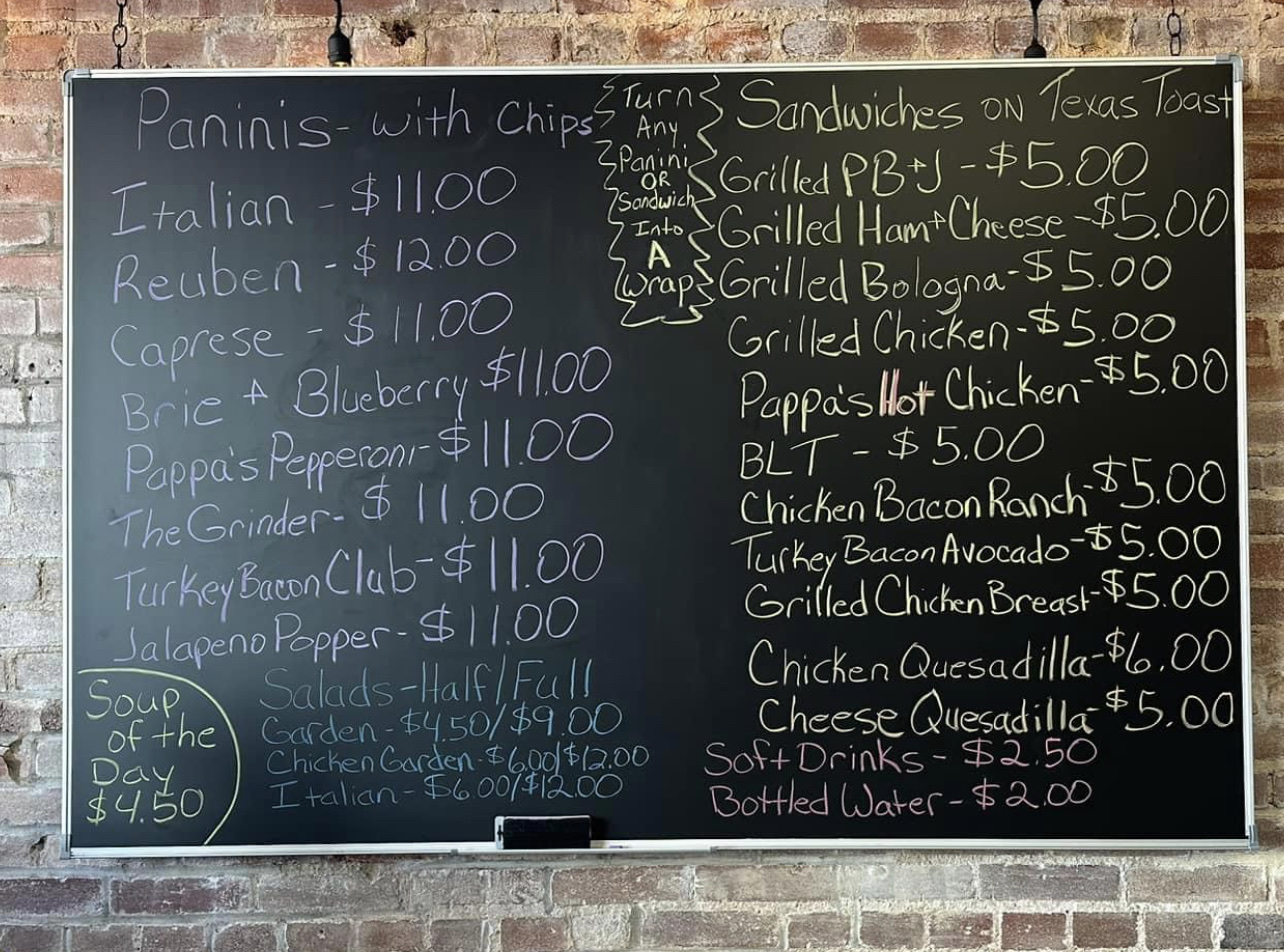 Paninis - with Chips
Italian - $11.00
Reuben - $12.00
Caprese - $11.00
Brie + Blueberry $11.00
Pappa's Pepperoni - $11.00
The Grinder - $11.00
Turkey Bacon Club - $11.00
Jalapeno Popper - $11.00
Soup
of the
Day
$4.50
Salads - Half/Full
Garden - $4.50/$9.00
Chicken Garden - $6.00/$12.00
Italian - $6.00/$12.00
Turn
Any
Panini
OR
Sandwich
Into
A
Wrap
Sandwiches on Texas Toast
Grilled PB+J - $5.00
Grilled Ham + Cheese - $5.00
Grilled Bologna - $5.00
Grilled Chicken - $5.00
Pappa's Hot Chicken - $5.00
BLT - $5.00
Chicken Bacon Ranch - $5.00
Turkey Bacon Avocado - $5.00
Grilled Chicken Breast - $5.00
Chicken Quesadilla - $6.00
Cheese Quesadilla - $5.00
Soft Drinks - $2.50
Bottled Water - $2.00